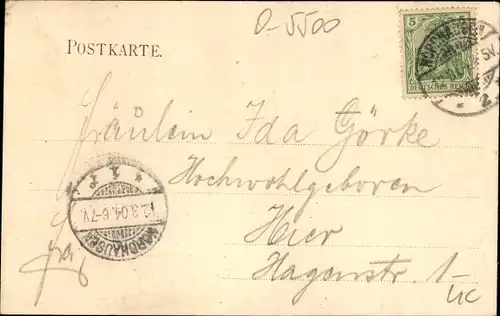 O-5500
POSTKARTE.
5 5
DEUTSCHES REICH
NORDHAUSEN
Fräulein Ida Görke
Hochwohlgeboren
* 1 P
12.3.04.6-7V.
NORDHAUSEN
Hier
Hagenstr. 1